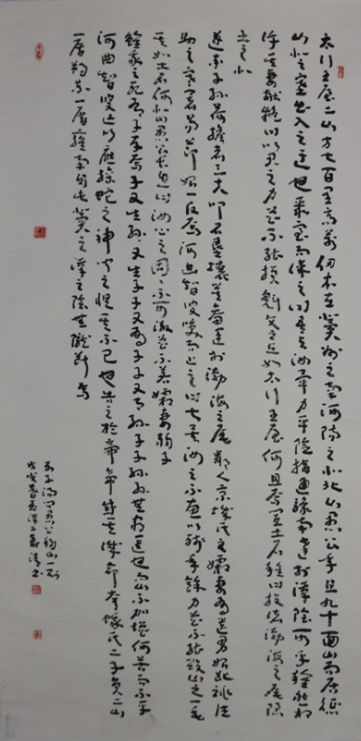 太行王屋二山方七百里高萬仞本在冀州之南河陽之北北山愚公年且九十面山而居懲
山北之塞出入之迂也聚室而謀之曰吾與汝畢力平險指通豫南達於漢陰可乎雜然相
許其妻獻疑曰以君之力曾不能損魁父之丘如太行王屋何且焉置土石雜曰投諸渤海之尾隱
土之北
遂率子孫荷擔者三夫叩石墾壤箕畚運於渤海之尾鄰人京城氏之孀妻有遺男始齔跳往
助之寒暑易節始一反焉河曲智叟笑而止之曰甚矣汝之不惠以殘年餘力曾不能毀山之一毛
其如土石何北山愚公長息曰汝心之固固不可徹曾不若孀妻弱子
雖我之死有子存焉子又生孫孫又生子子又有子子又有孫子子孫孫無窮匱也而山不加增何苦而不平
河曲智叟亡以應操蛇之神聞之懼其不已也告之於帝帝感其誠命夸娥氏二子負二山
一厝朔東一厝雍南自此冀之南漢之陰無隴斷焉
列子湯問愚公移山一則
戊戌春月